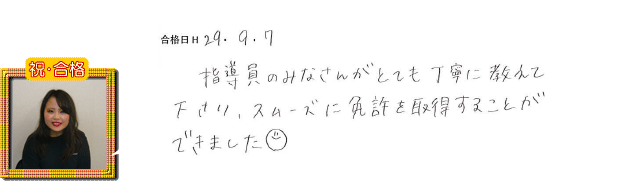 合格日H 29. 9. 7
祝・合格
指導員のみなさんがとても丁寧に教えて
下さり、スムーズに免許を取得することが
できました